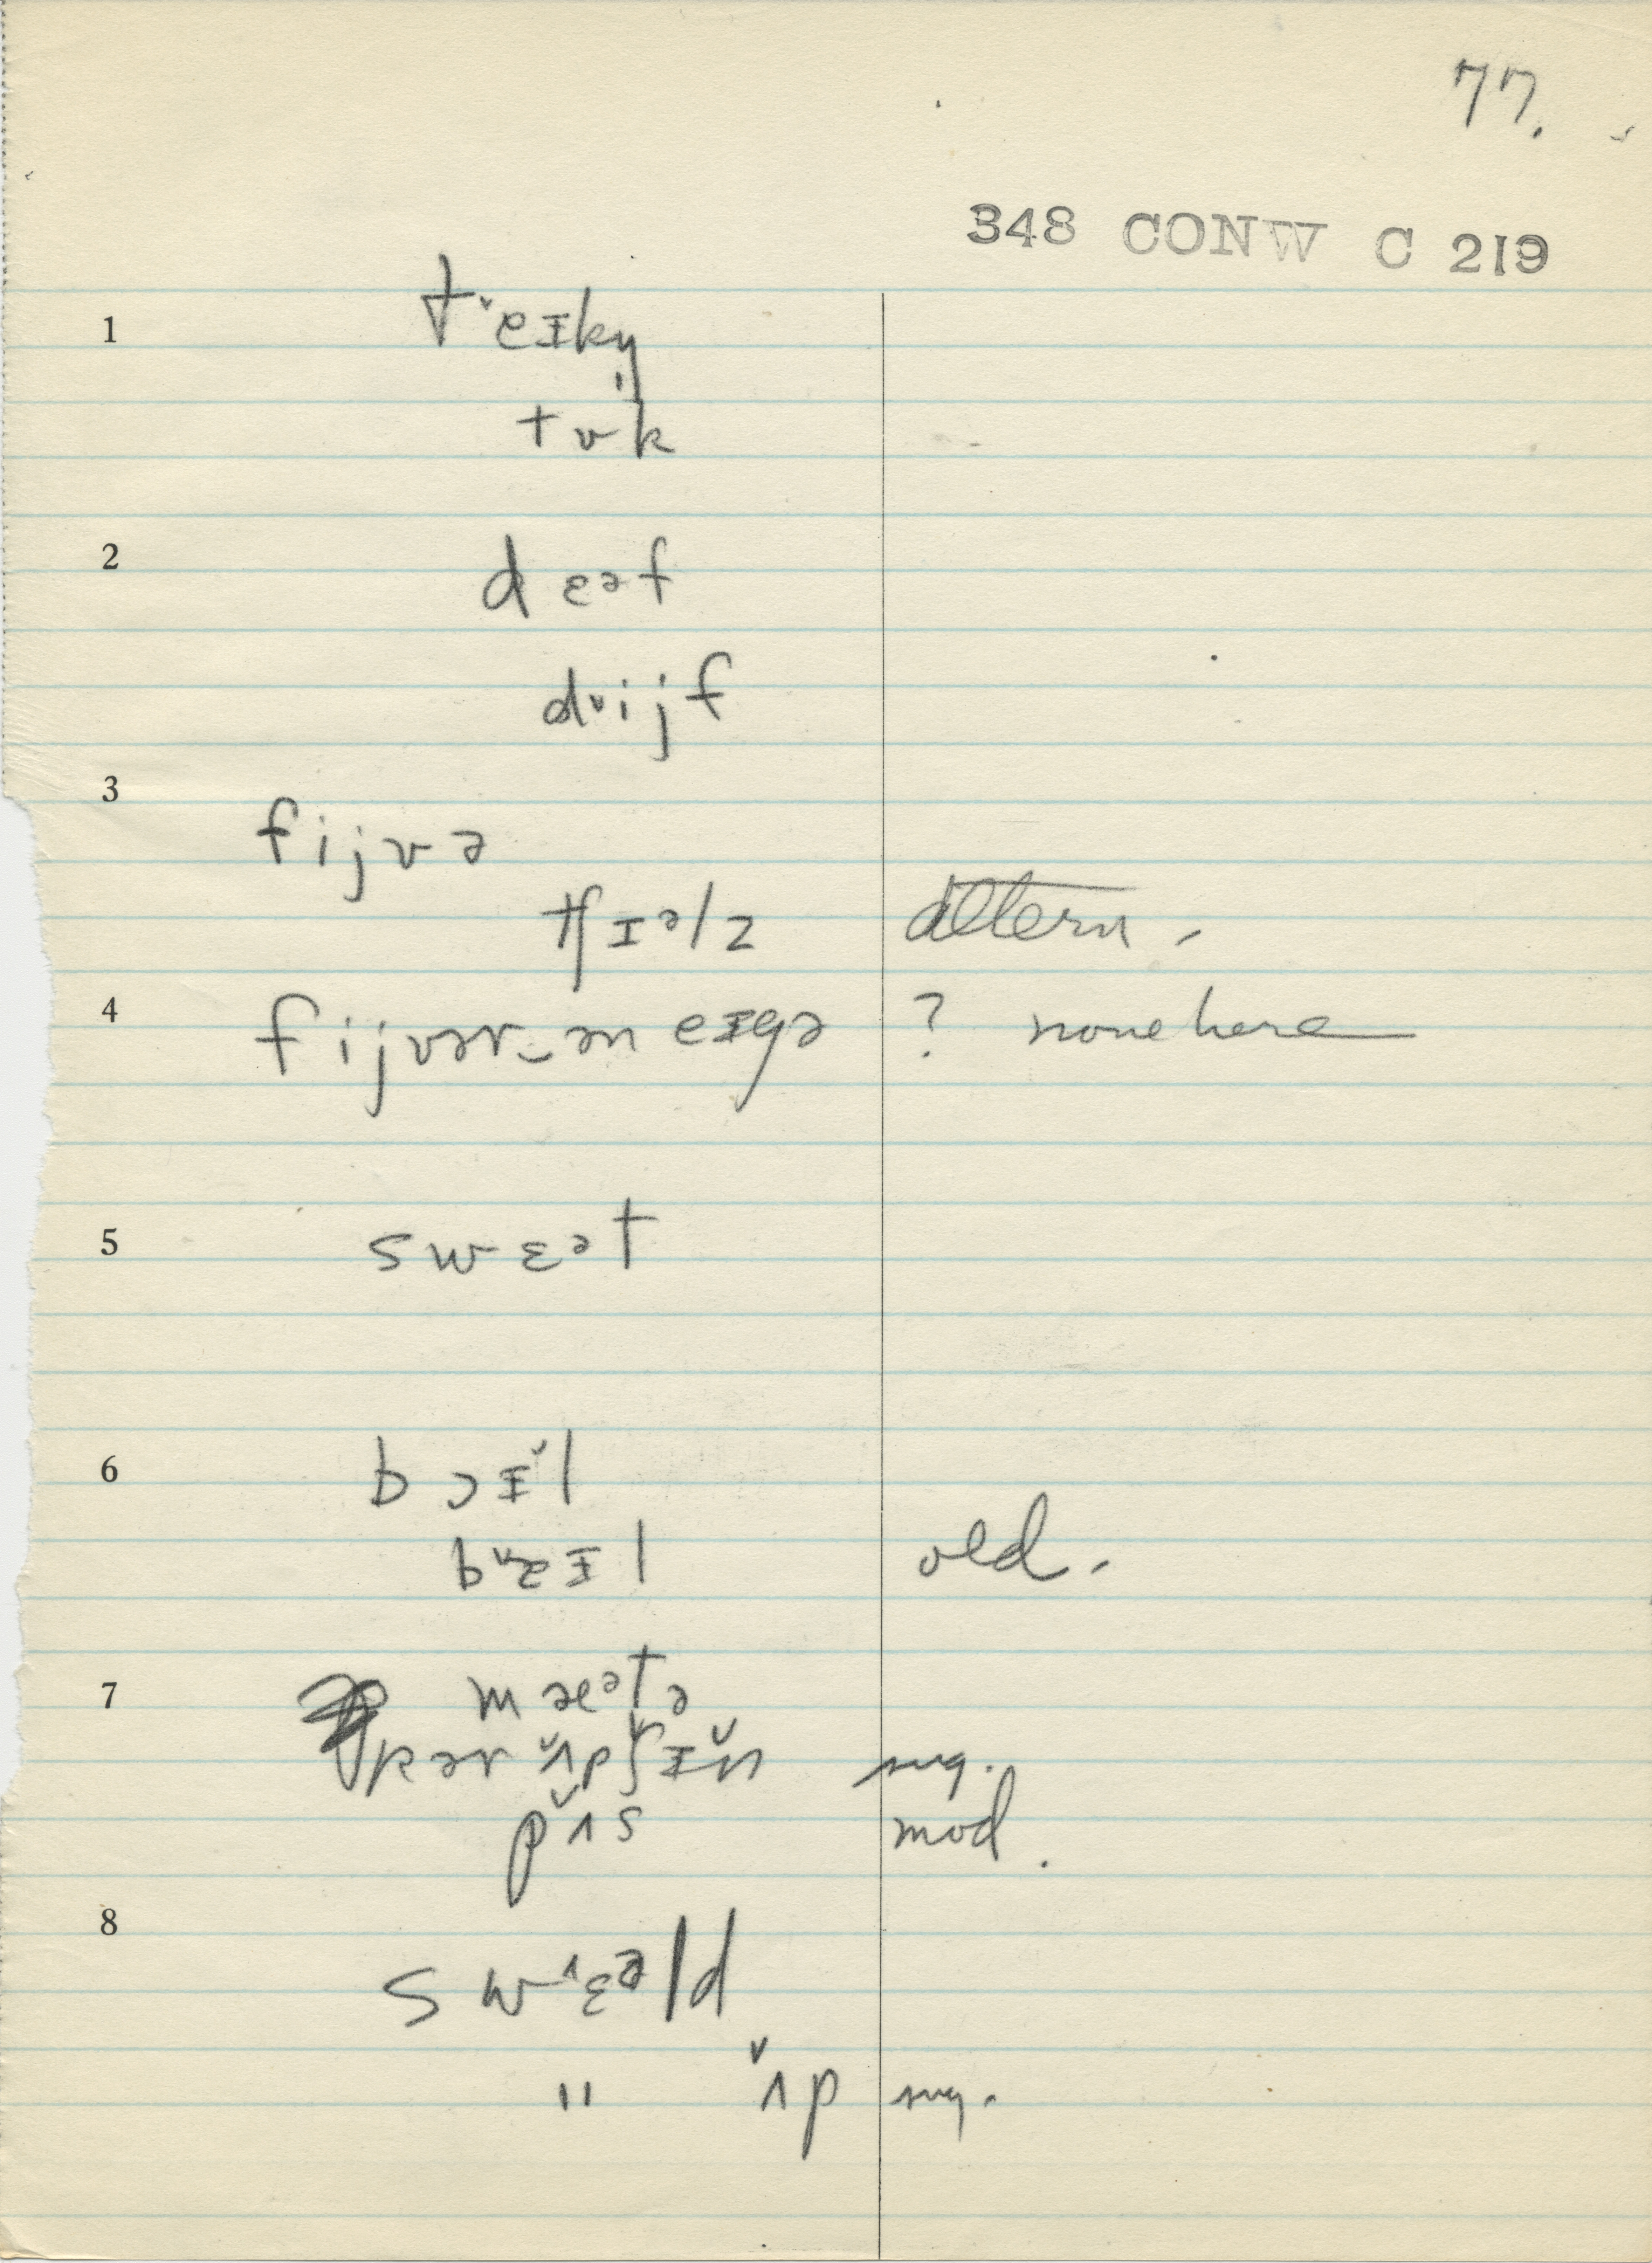 77.
348 CONW C 219
1
t˅eɪkŋ̩
tʊk
2
d ɛᵊf
d˅ijf
3
fijvə
tʃɪᵊlz altern.
4
fijvər‿ən eɪgə ? none here
5
swɛᵊt
6
bɔɪ̌l
b˅ɐɪl old.
7
mæᵊtə
pər ʌ̌p ʃɪ̌n sug.
pʌ̌s mod.
8
sw˄ɛᵊld
" ʌ̌p sug.